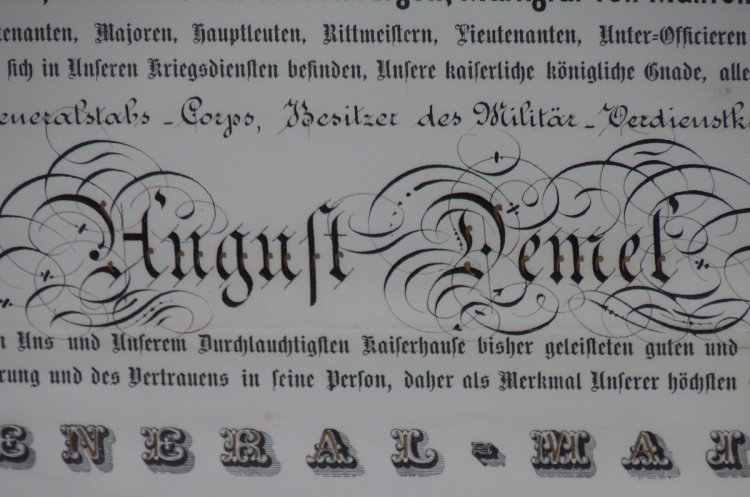 tenanten, Majoren, Hauptleuten, Rittmeistern, Lieutenanten, Unter=Officieren
sich in Unseren Kriegsdiensten befinden, Unsere kaiserliche königliche Gnade, alle
eneralstabs-Corps, Besitzer des Militär-Verdienstk
August Demel
n Uns und Unserem Durchlauchtigsten Kaiserhause bisher geleisteten guten und
rung und des Vertrauens in seine Person, daher als Merkmal Unserer höchsten
ENERAL-MAI